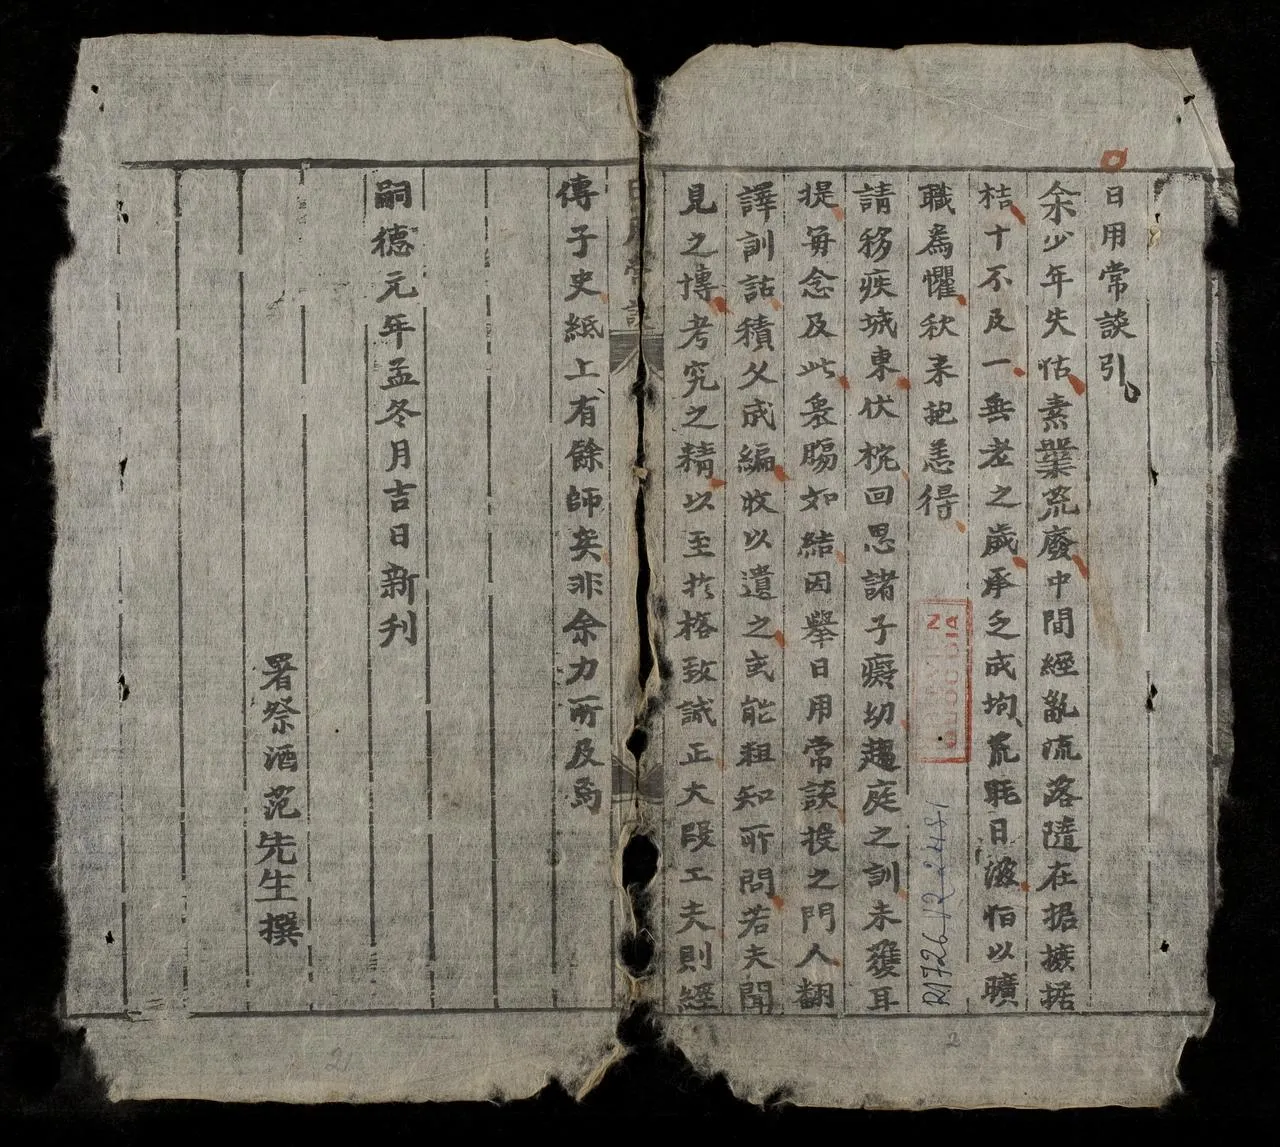 日用常談引
余少年失怙素業荒廢中間經亂流落隨在捃摭拮
桔十不及一無老之歲承乏成均荒耗日滋怕以曠
職爲懼秋来抱恙得
請移疾城東伏枕回思諸子癡幼趨庭之訓未獲耳
提每念及此衷腸如結因舉日用常談授之門人翻
譯訓詁積久成編收以遺之或能粗知所問若夫聞
見之博考究之精以至於格致誠正大段工夫則經
傳子史紙上有餘師矣非余力所及焉
嗣德元年孟冬月吉日新刊
署祭酒范先生撰
R1726
2
21